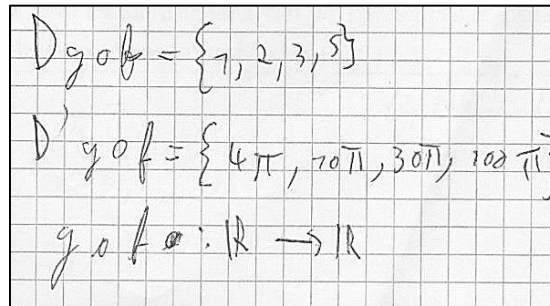 D g o f = {1, 2, 3, 5}
D' g o f = {4π, 10π, 30π, 108π}
g o f : ℝ → ℝ